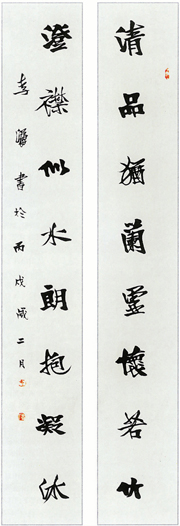 清品猶蘭虛懷若竹
澄襟似水朗抱凝冰
書於丙戌歲二月